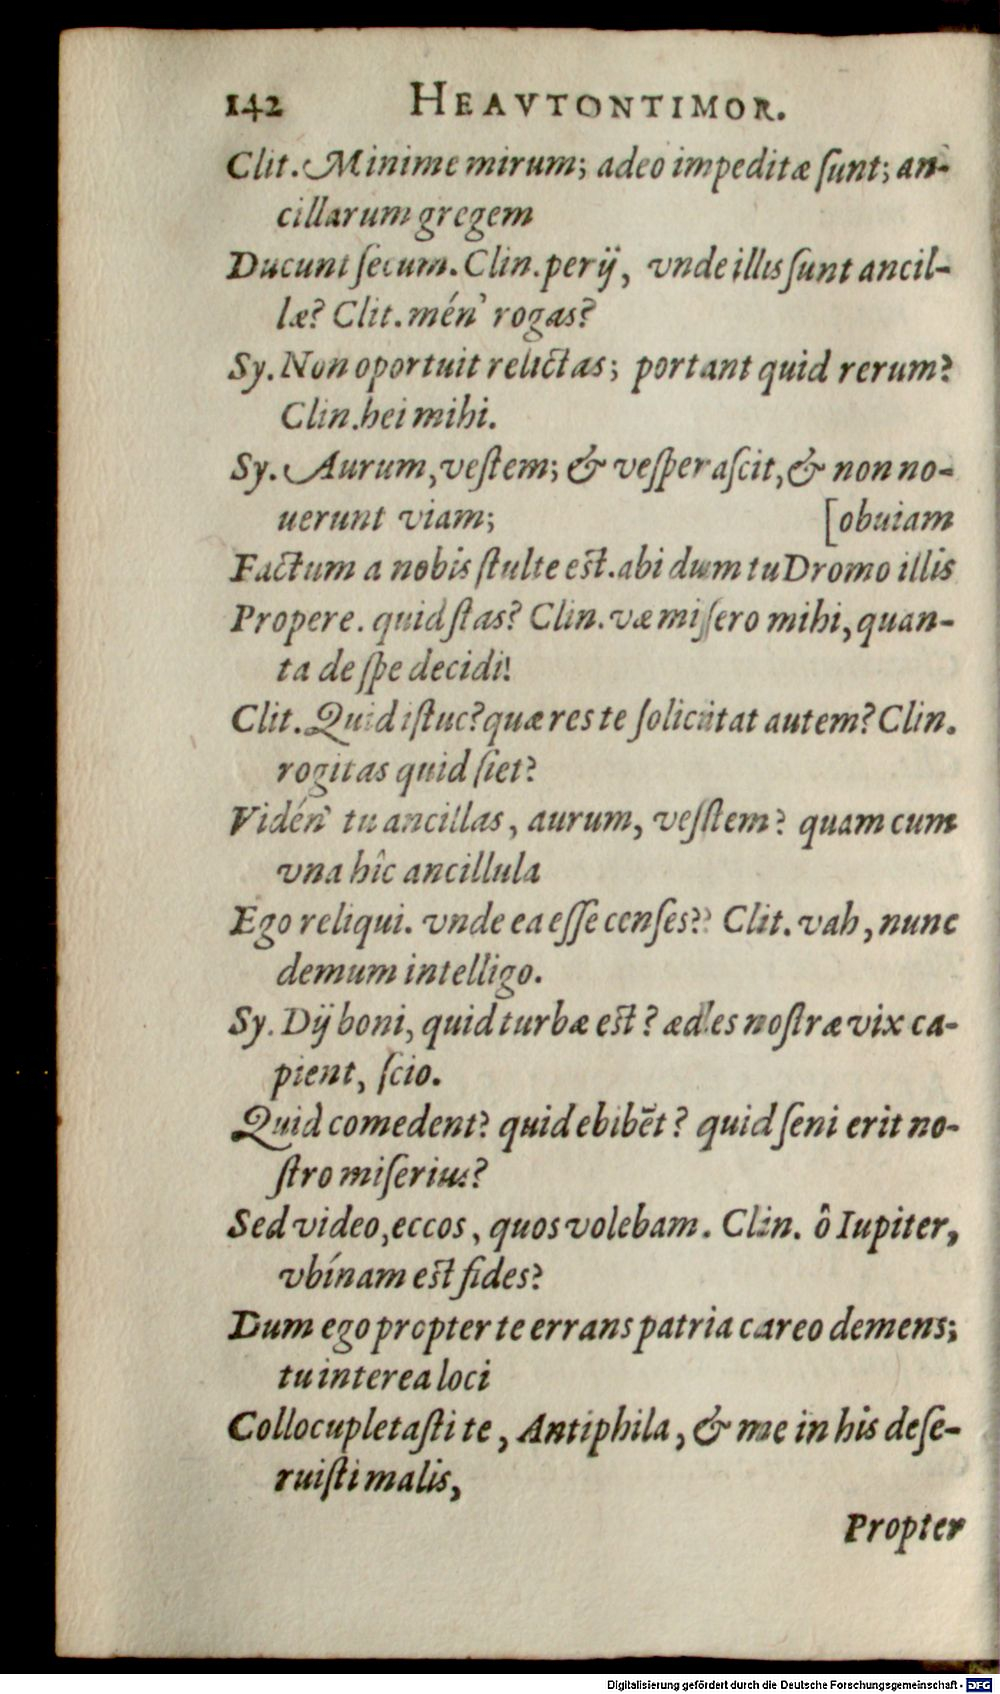 142 HEAVTONTIMOR.
Clit. Minime mirum; adeo impeditæ ſunt; an-
cillarum gregem
Ducunt ſecum. Clin. perij, vnde illis ſunt ancil-
læ? Clit. mén' rogas?
Sy. Non oportuit relictas; portant quid rerum?
Clin. hei mihi.
Sy. Aurum, veſtem; & veſperaſcit, & non no-
uerunt viam; [obuiam
Factum a nobis ſtulte est. abi dum tu Dromo illis
Propere. quid ſtas? Clin. væ miſero mihi, quan-
ta de ſpe decidi!
Clit. Quid iſtuc? quæ res te ſolicitat autem? Clin.
rogitas quid ſiet?
Vidén' tu ancillas, aurum, veſtem? quam cum
vna hîc ancillula
Ego reliqui. vnde ea eſſe cenſes? Clit. vah, nunc
demum intelligo.
Sy. Dij boni, quid turbæ est? ædes noſtræ vix ca-
pient, ſcio.
Quid comedent? quid ebibēt? quid ſeni erit no-
ſtro miſerius?
Sed video, eccos, quos volebam. Clin. ô Iupiter,
vbínam est fides?
Dum ego propter te errans patria careo demens;
tu interea loci
Collocupletaſti te, Antiphila, & me in his deſe-
ruiſti malis,
Propter
Digitalisierung gefördert durch die Deutsche Forschungsgemeinschaft - DFG